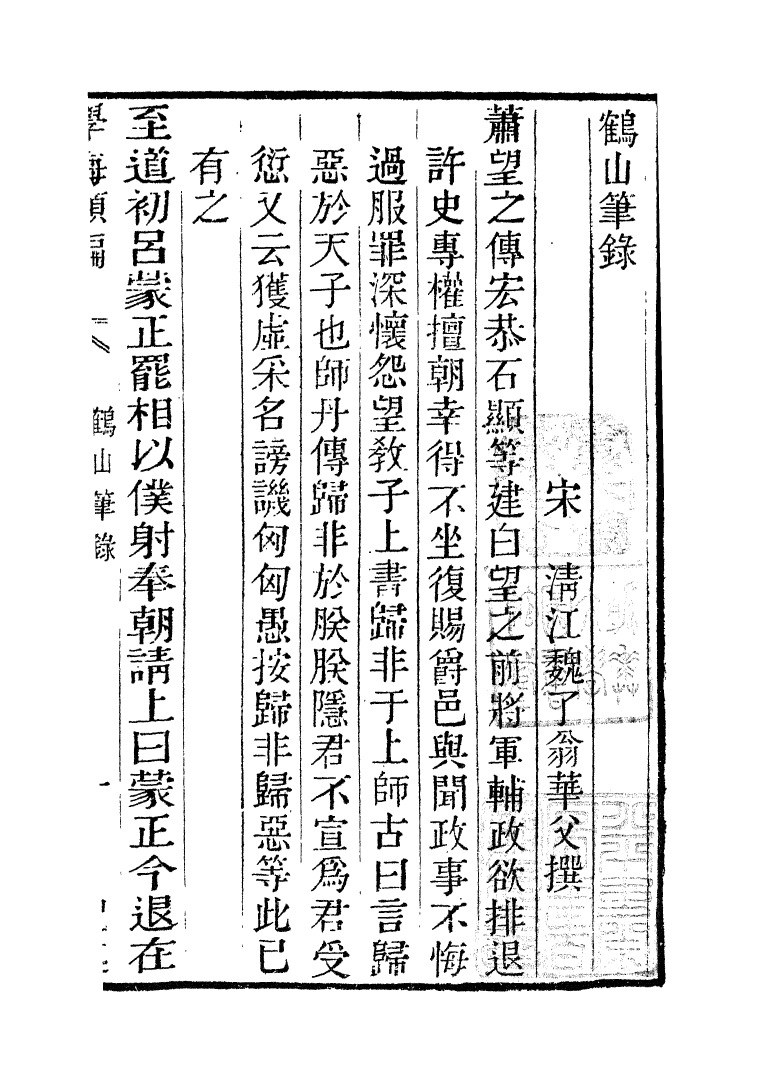 鶴山筆錄
宋　淸江魏了翁華父撰
蕭望之傳宏恭石顯等建白望之前將軍輔政欲排退
許史專權擅朝幸得不坐復賜爵邑與聞政事不悔
過服罪深懷怨望敎子上書歸非于上師古曰言歸
惡於天子也師丹傳歸非於朕朕隱君不宣爲君受
愆又云獲虛采名謗譏匈匈愚按歸非歸惡等此已
有之
至道初呂蒙正罷相以僕射奉朝請上曰蒙正今退在
學海類編
鶴山筆錄
一